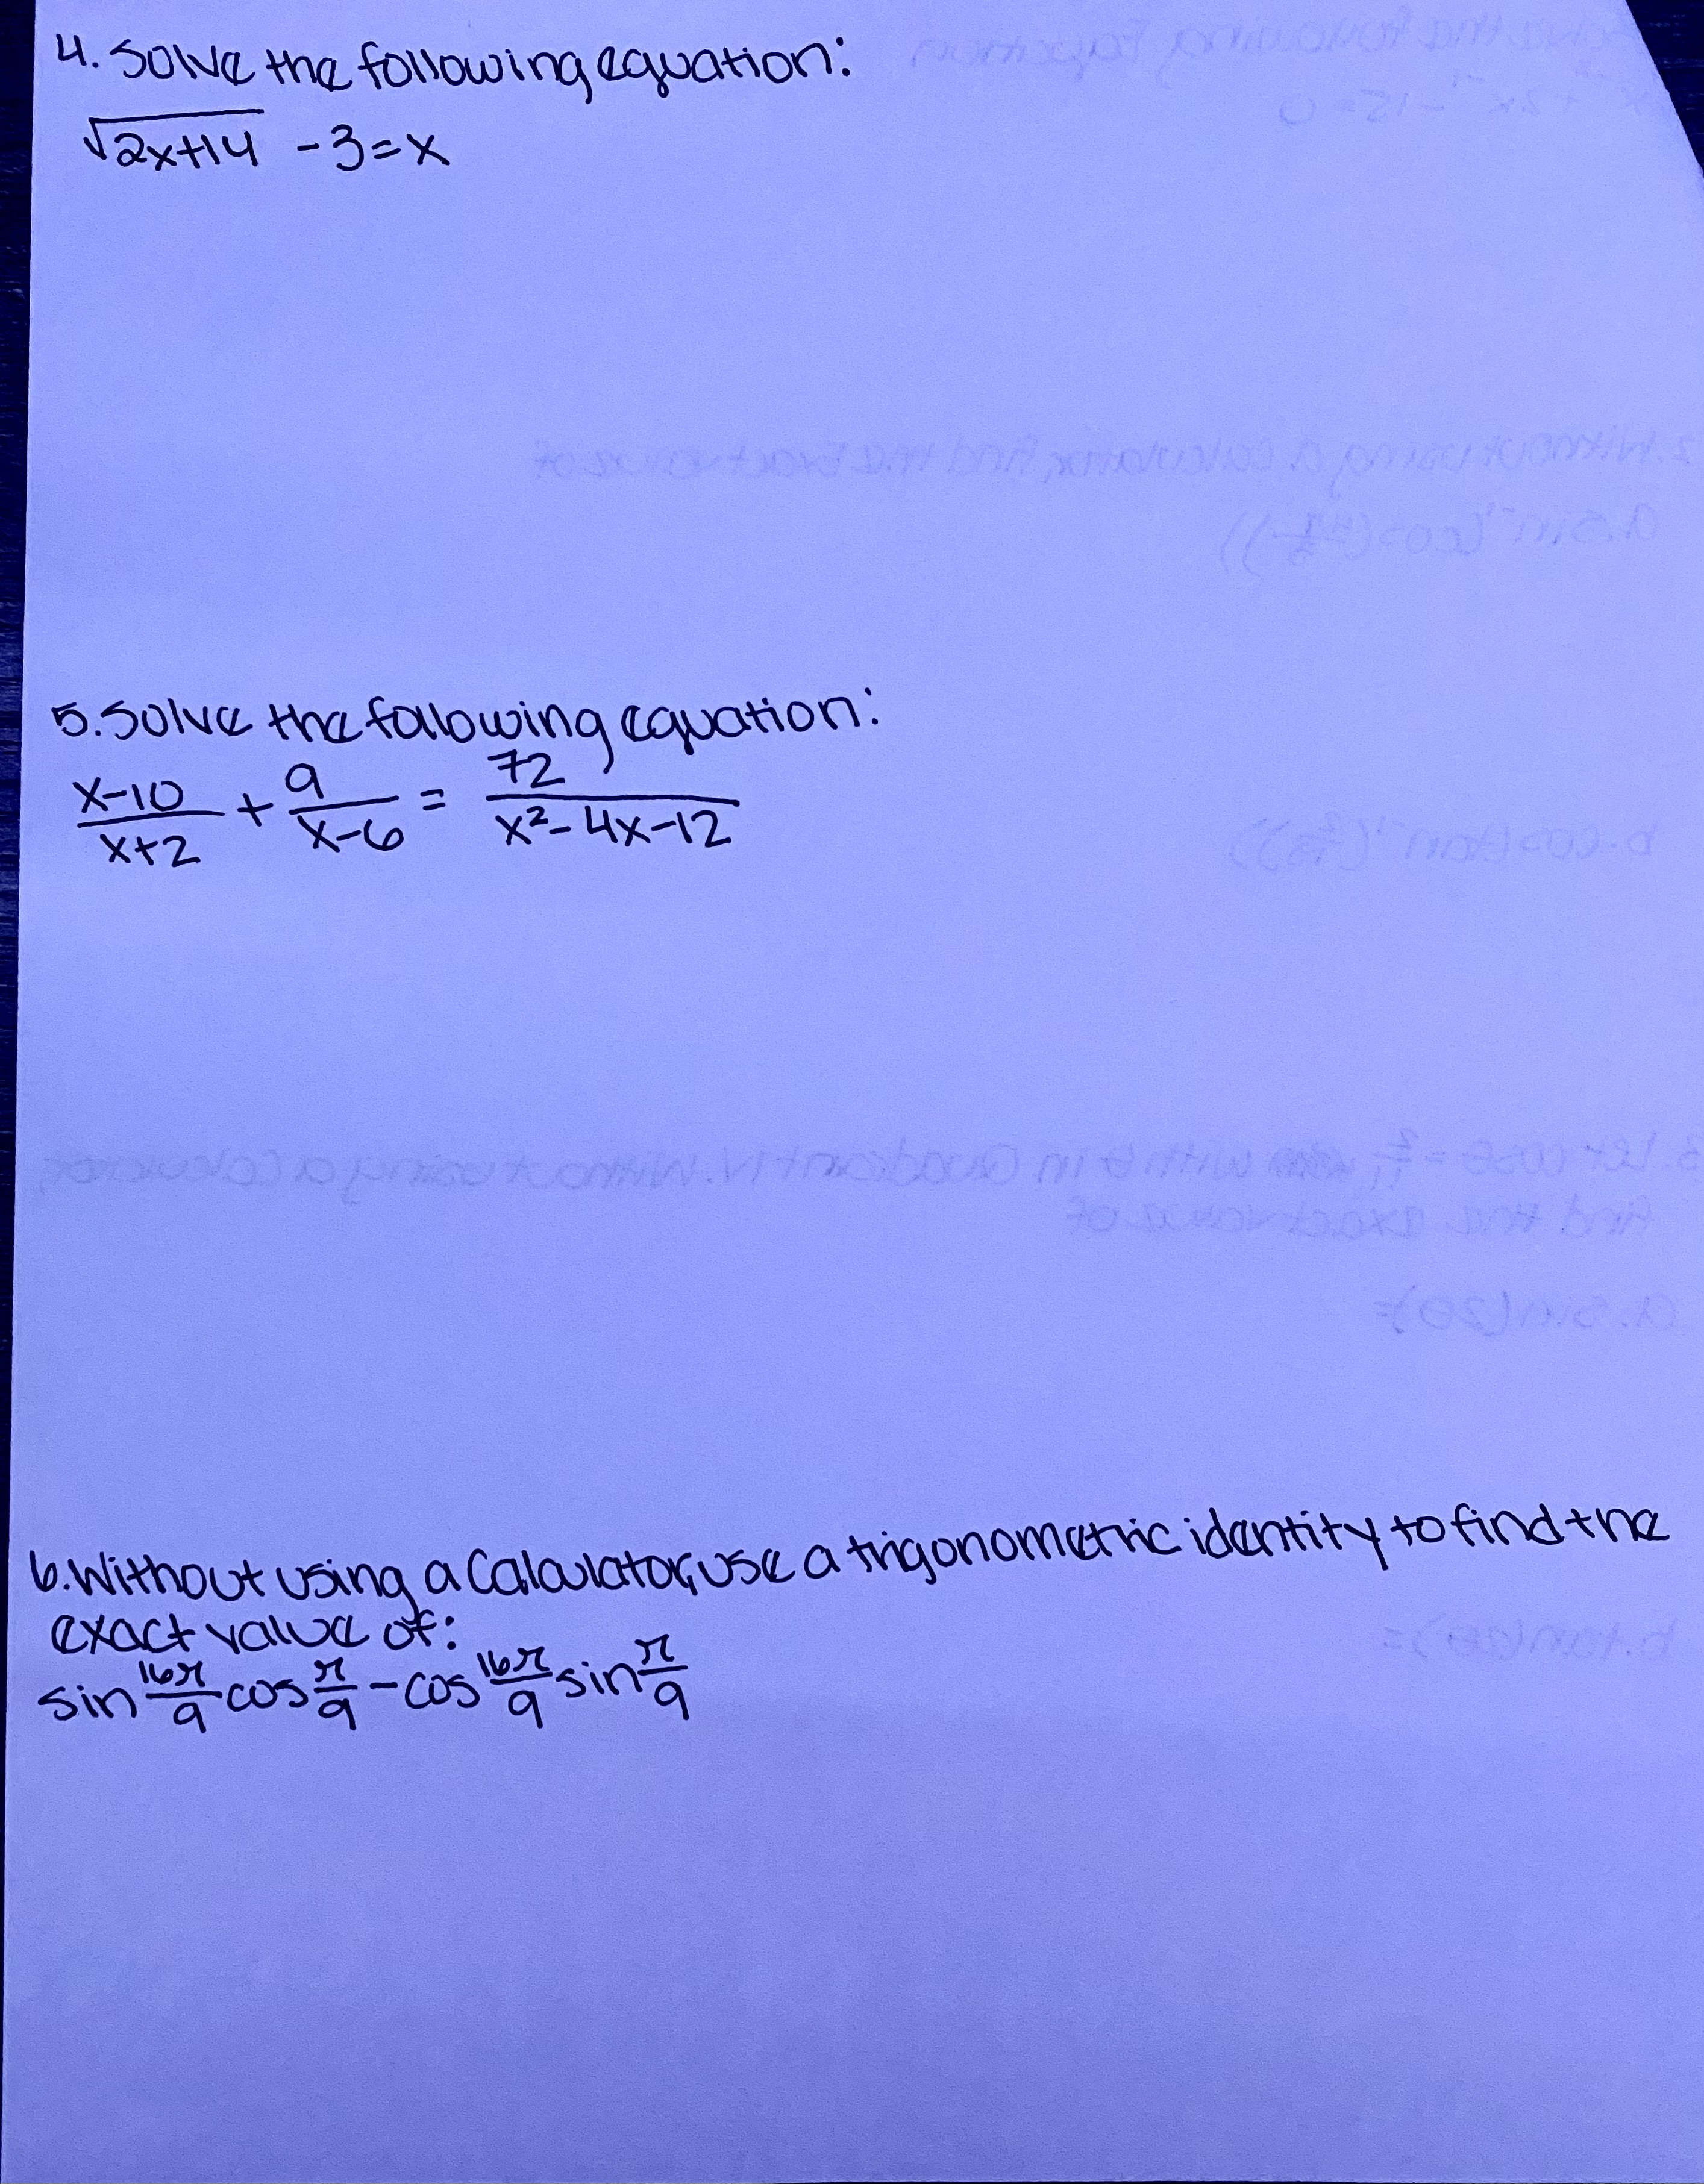 4. Solve the following equation:
√2x+14 - 3 = x
5. Solve the following equation:
x-10/x+2 + 9/x-6 = 72/x²-4x-12
6. Without using a Calculator, use a trigonometric identity to find the
exact value of:
sin 16π/9 cos π/9 - cos 16π/9 sin π/9